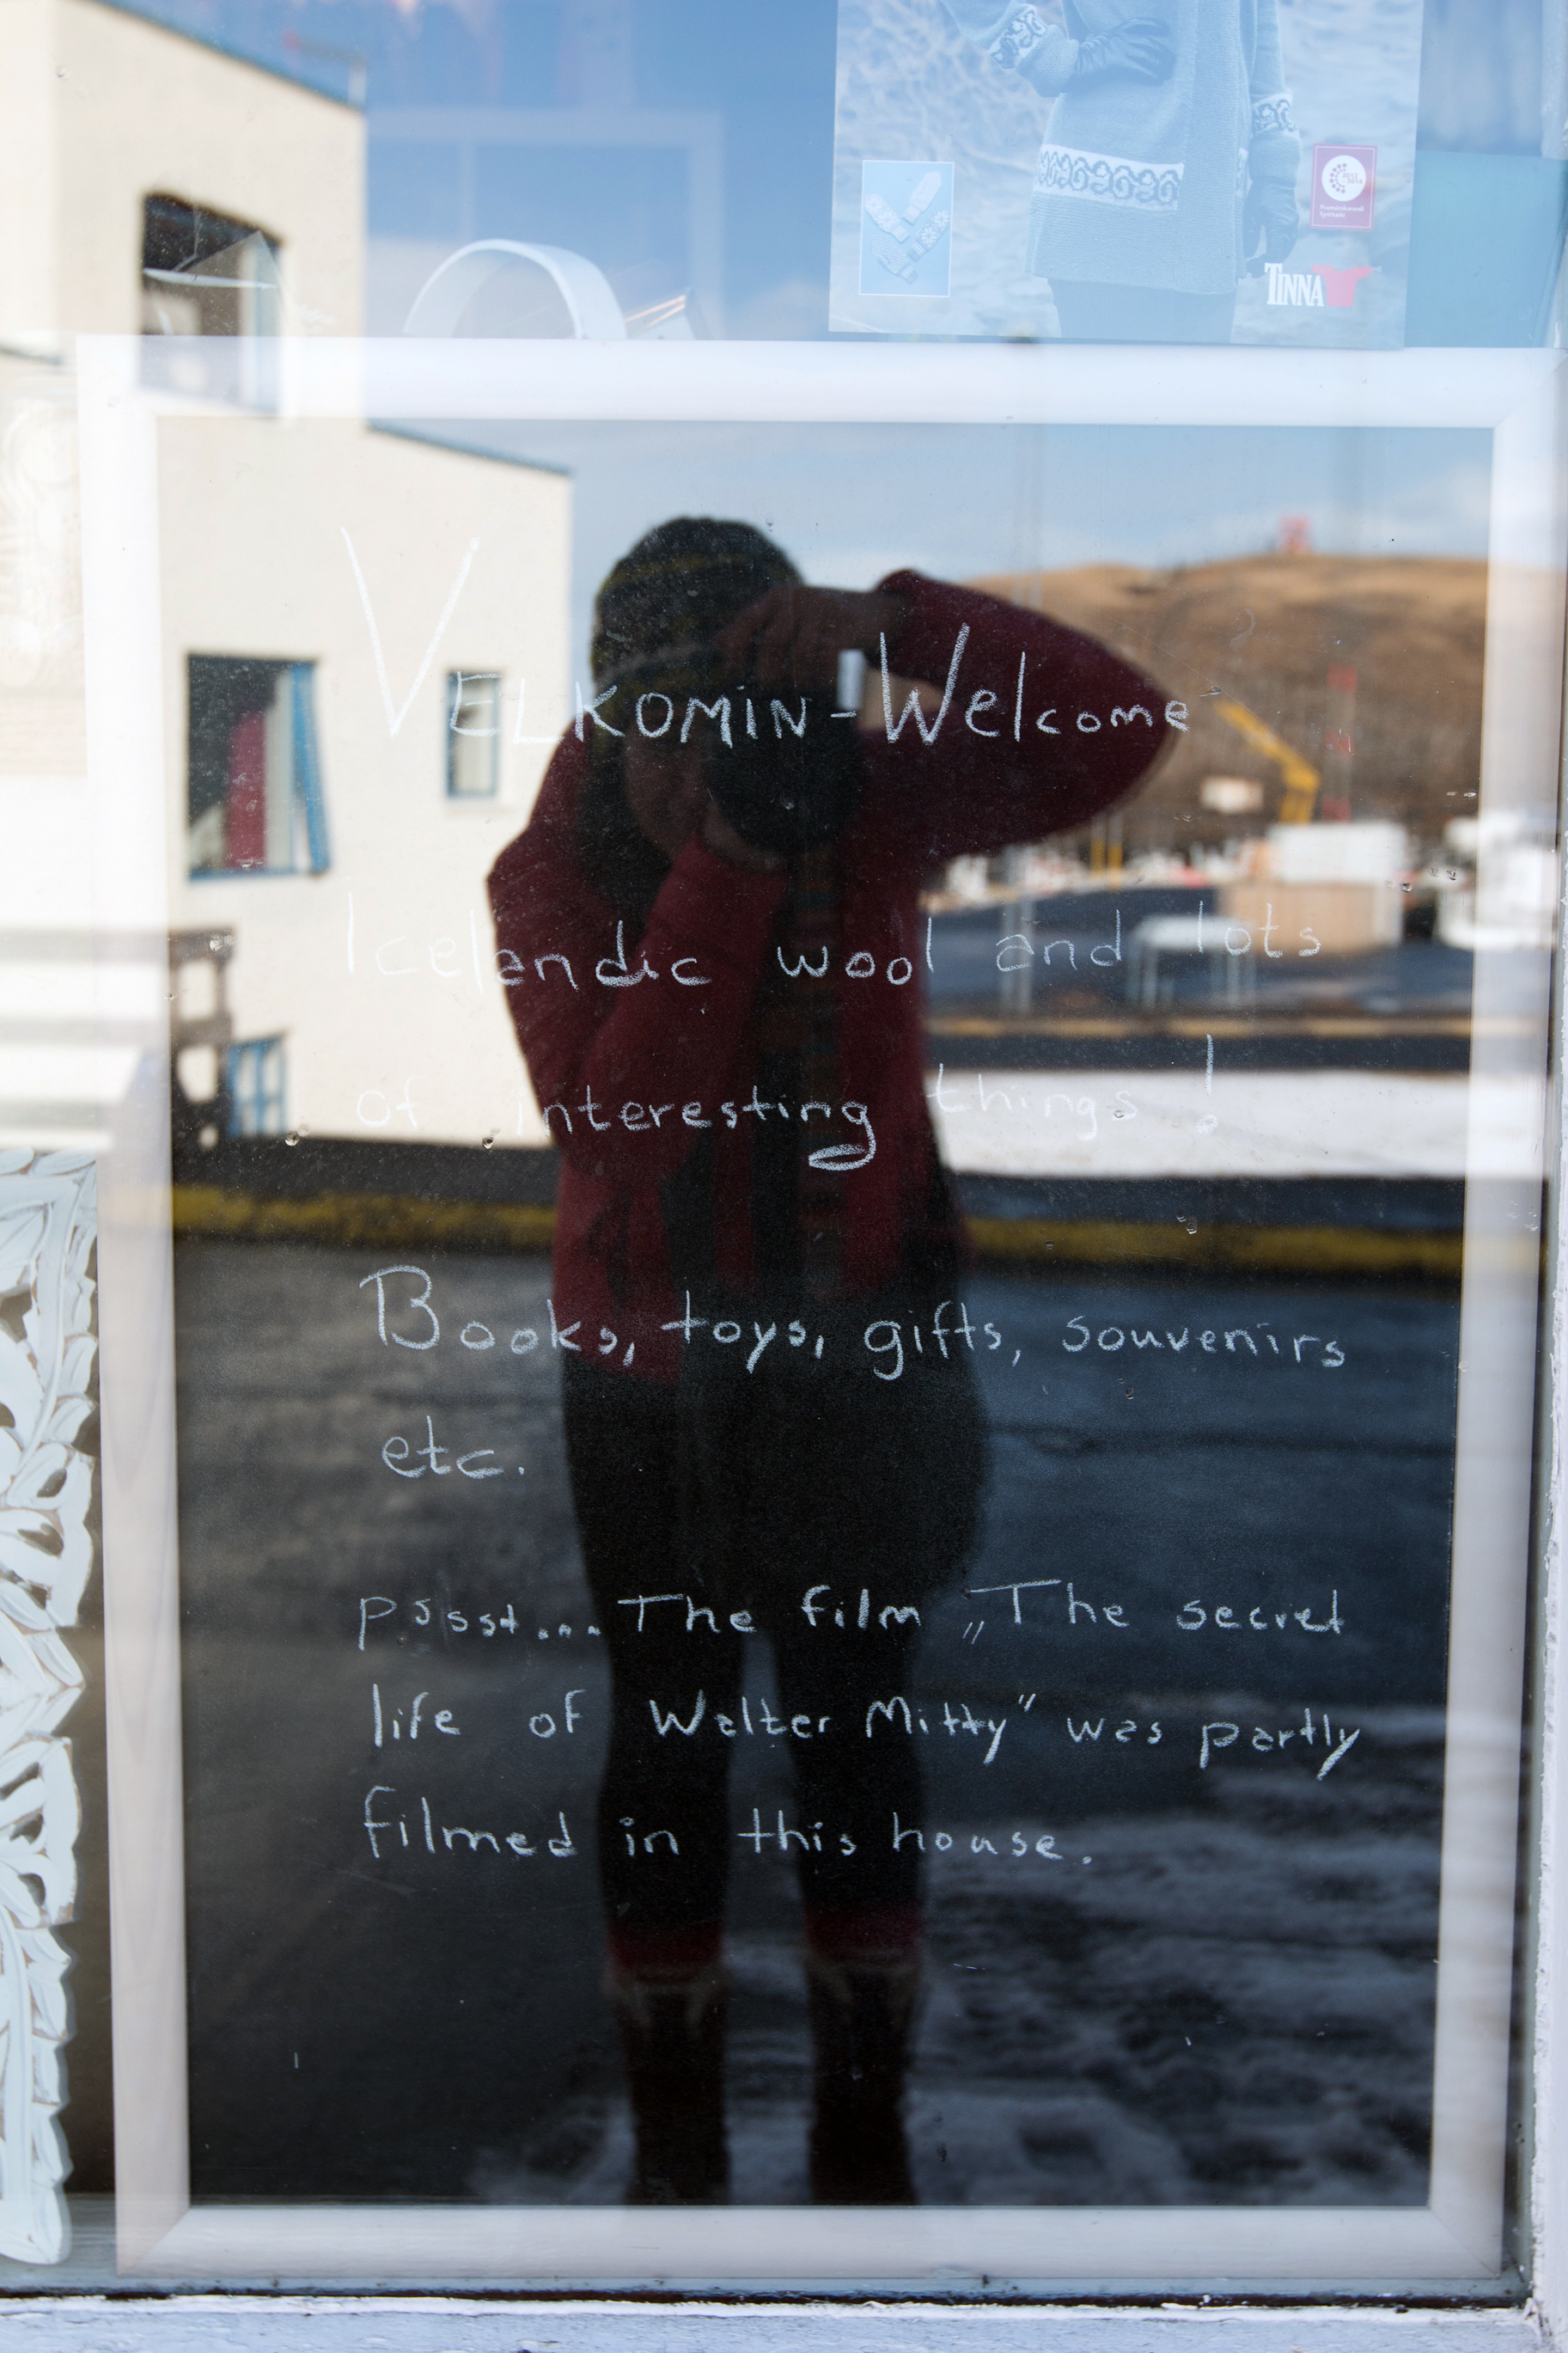 TINNA
VELKOMIN - Welcome
Icelandic wool and lots
of interesting things !
Books, toys, gifts, souvenirs
etc.
pssst... The film „The secret
life of Walter Mitty" was partly
filmed in this house.